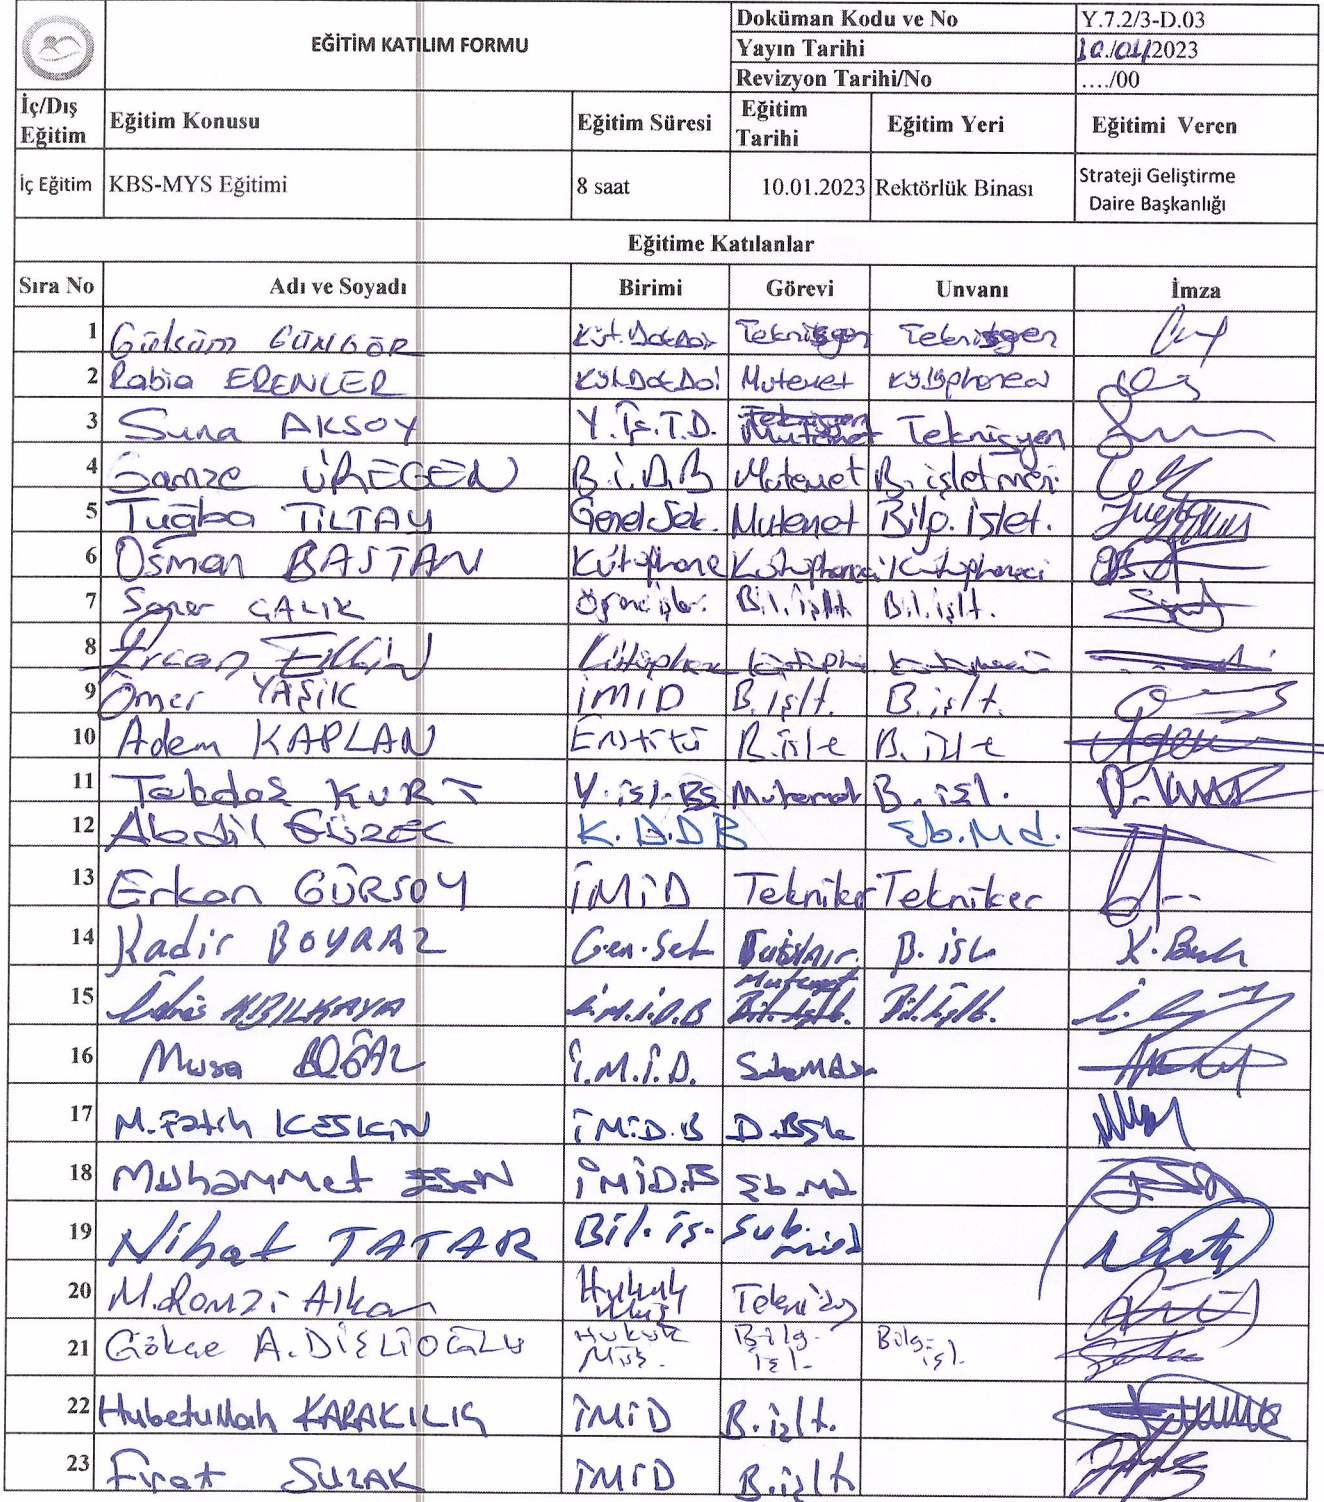 EĞİTİM KATILIM FORMU
Doküman Kodu ve No Y.7.2/3-D.03
Yayın Tarihi 10/01/2023
Revizyon Tarihi/No ..../00
İç/Dış Eğitim Eğitim Konusu Eğitim Süresi Eğitim Tarihi Eğitim Yeri Eğitimi Veren
İç Eğitim KBS-MYS Eğitimi 8 saat 10.01.2023 Rektörlük Binası Strateji Geliştirme Daire Başkanlığı
Eğitime Katılanlar
Sıra No Adı ve Soyadı Birimi Görevi Unvanı İmza
1 Gülsüm GÜNGÖR Küt.Dok.Dai Teknisyen Teknisyen
2 Rabia ERENLER Küt.Dok.Dai Mutemet Kütüphaneci
3 Suna AKSOY Y.İş.T.D. Mutemet Teknisyen
4 Gamze ÜREGEN B.İ.D.B Mutemet B. işletmeni
5 Tuğba TİLTAY Genel Sek. Mutemet Bilg. İşlet.
6 Osman BASTAN Kütüphane Kütüphaneci Kütüphaneci
7 Soner ÇALIK Öğrenci işler. Bil. işlt. Bil. işlt.
8 Ercan Kütüphane
9 Ömer YAŞIK İMİD B.işlt. B.işlt.
10 Adem KAPLAN Enstitü B.işle B.işle
11 KURT Y.işl.BŞ Mutemet B. işl.
12 Abdil GÜZEL K.D.DB Şb.Md.
13 Erkan GÜRSOY İMİD Tekniker Tekniker
14 Kadir BOYRAZ Gen.Sek B. işl.
15 İdris İ.M.İ.D.B Mutemet Bil.İşlt. Bil.İşlt.
16 Musa BOĞAZ İ.M.İ.D.
17 M.Fatih KESKİN İMİD.B D.Bşk
18 Muhammet ESEN İMİD.B Şb.Md
19 Nihat TATAR Bil.İş.
20 M.Remzi Alkan Hukuk Müş
21 Gökçe A.DİŞLİOĞLU Hukuk Müş. Bilg. işl. Bilg. işl.
22 Hubetullah KARAKILIÇ İMİD B.işlt.
23 Fırat SUZAK İMİD B.işlt